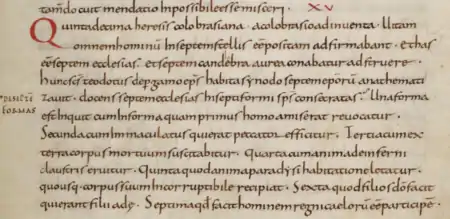 tam do cuit mendatio inpossibile est se misceri. XV
Quinta decima heresis colobrasiana. a colobrasio adinventa. Ui tam
omnem hominū in septem stellis eē positam adfirmabant. Ethas
eē septem ecclesias. et septem candebra aurea conabatur adstruere.
septeotus depgamo eps habita synodo septem eporū anathemati
zauit. docens septem ecclesias in septiformi sps consecratas. Una forma
est Inquit cum In forma quam primus homo amiserat revocatur.
Secunda cum Inmaculatus qui erat peccator efficitur. Tertia cum ex
terra corpus mortuum suscitabitur. Quarta cum anima de inferni
claustris eruitur. Quinta quod anima paradysi habitatione letatur.
quousq; corpus suum Incorruptibile recipiat. Sexta quod filios dō facit
qui erant filii adę. Septima qđ facit hominem regni caelorū eē participē.